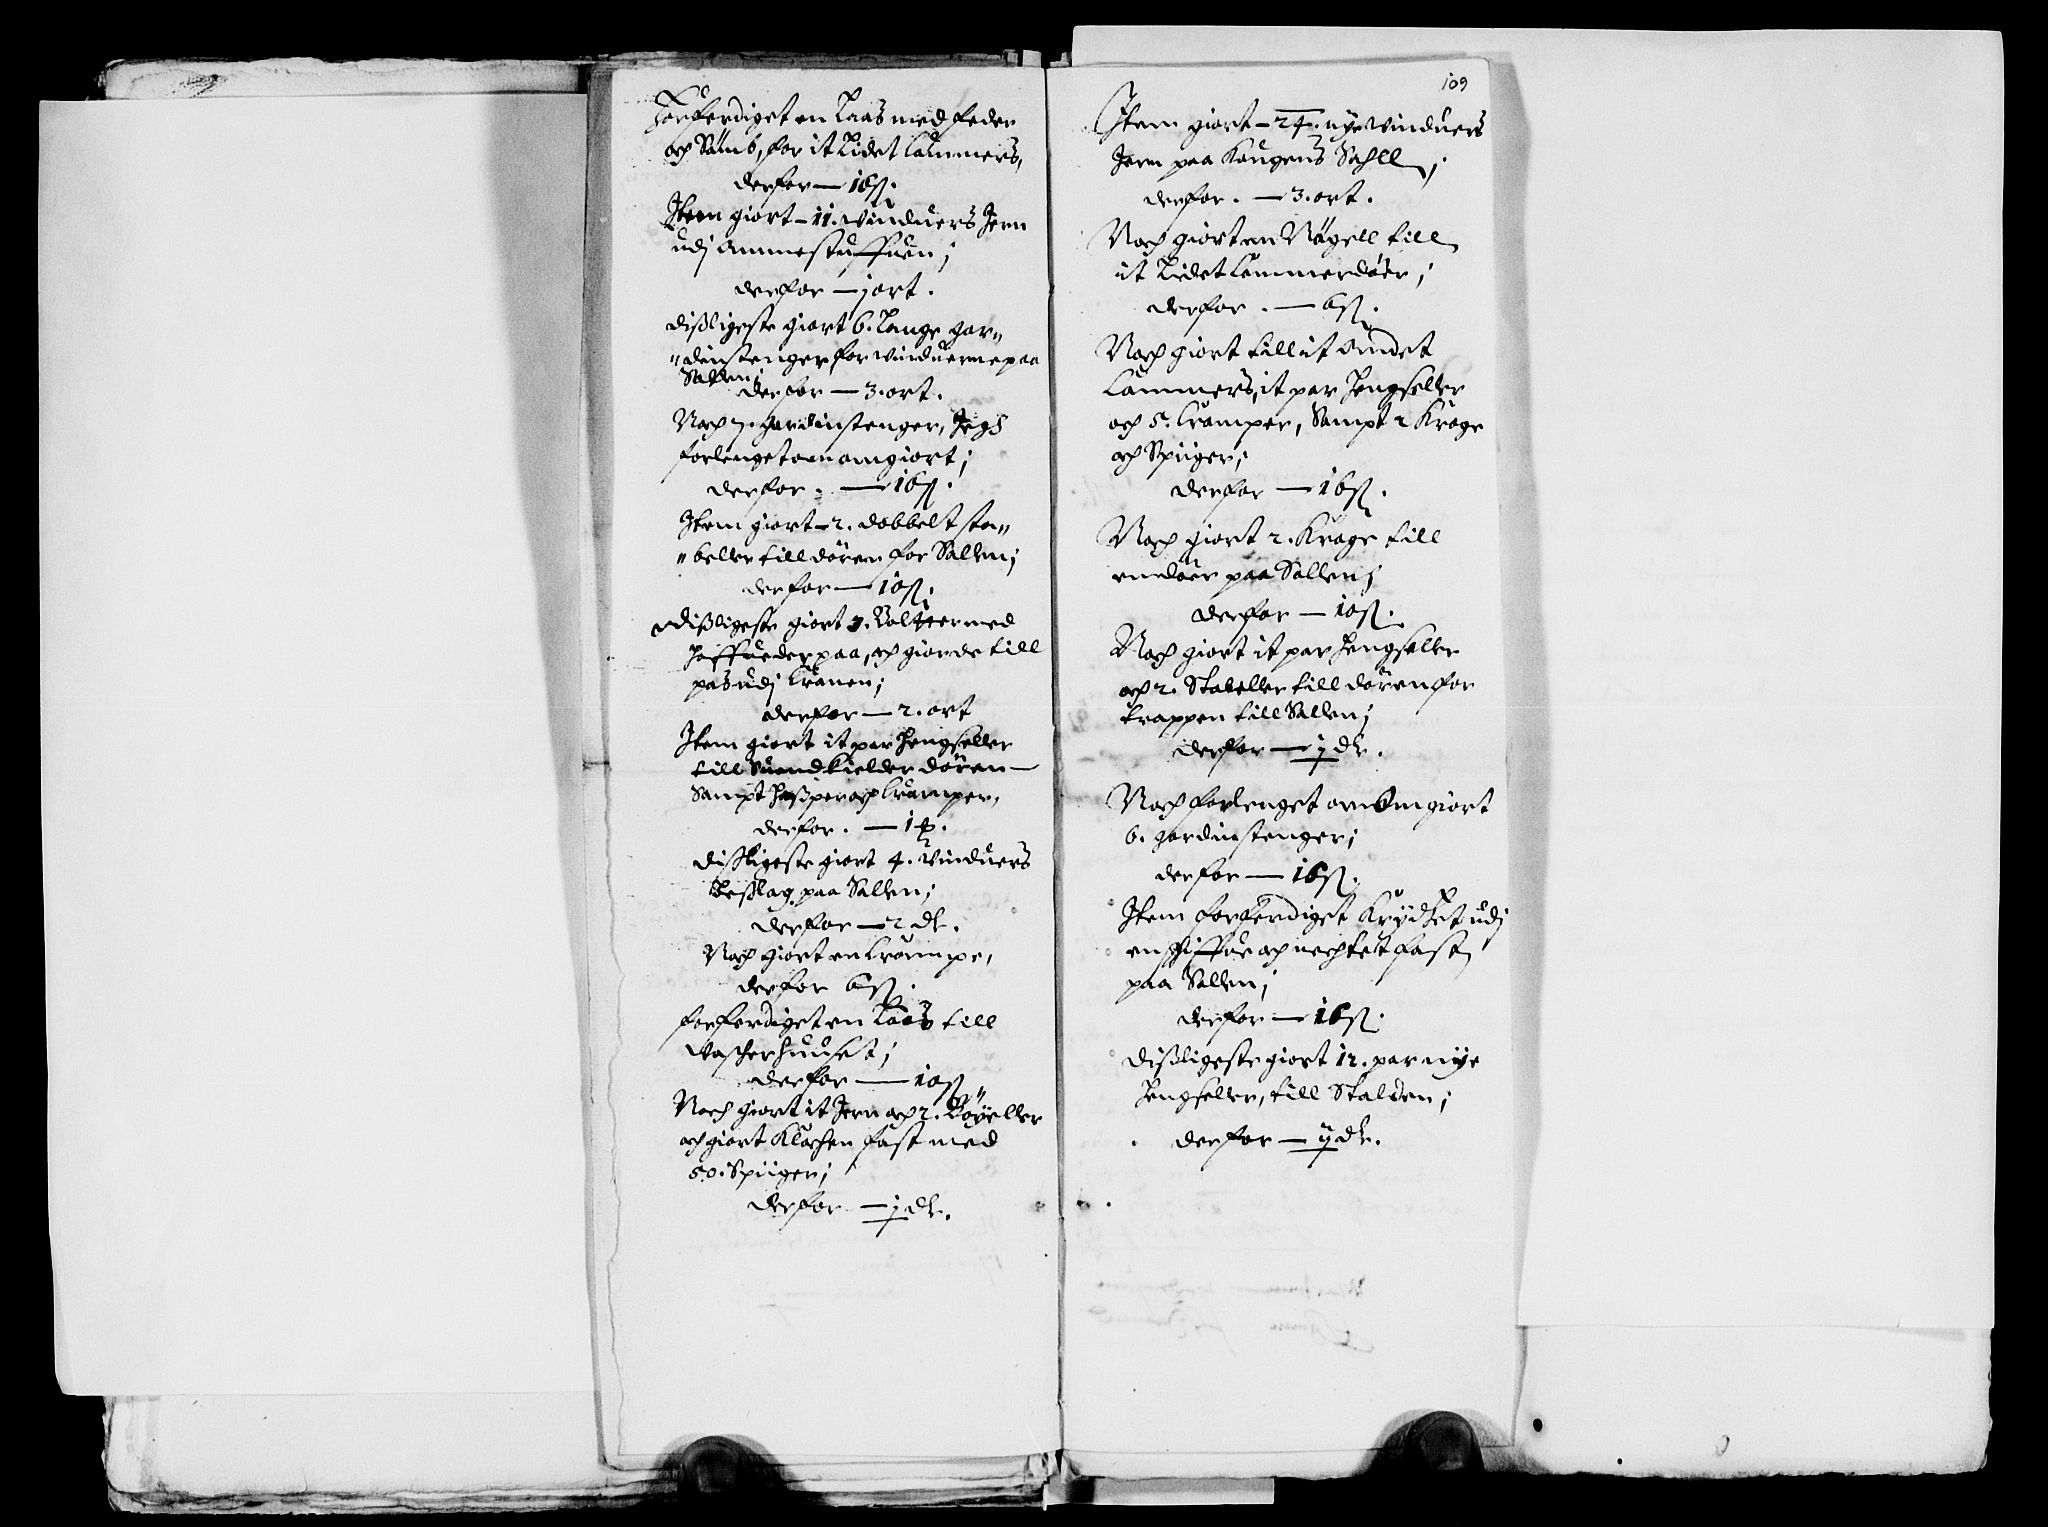 Forferdiget en Laas med feder
och Søm 6, for it Lidet Cammers,
derfor — 16 ß.
Item giort – 11. vinduers Jern
udj Ammestuffuen;
derfor — j ort.
dißligeste giort 6. Lange gar„
„dinstenger for vinduerne paa
Sallen;
derfor — 3. ort.
Noch 7. gardinstenger, Jegh
forlenget om omgiort;
derfor. — 16 ß.
Item giort – 2. dobbelt sta„
„beller till dören for Sallen;
derfor — 10 ß.
Dißligeste giort 3. Boltter med
Hoffueder paa, och giorde till
pas udj Cranen;
derfor — 2. ort
Item giort it par Hengseller
till Suendkielder dören —
Sampt Haßper och Cramper,
derfor. — 1
dißligeste giort 4. Vinduers
Beslag paa Sallen;
derfor — 2 dr.
Noch giort en Crampe,
derfor 6 ß.
forferdiget en Laas till
Wascherhuuset;
derfor — 10 ß
Noch giort it Jern och 2. Böyeller
och giort Klochen fast med
50. Spiiger;
derfor — j dr.
109
Item giort – 24. nye Vinduers
Jern paa Kongens Sahll;
derfor. — 3. ort.
Noch giort en Nøgell till
it Lidet Cammerdöer;
derfor. — 6 ß.
Noch giort till it Andet
Cammers, it par Hengseller
och 5. Cramper, Sampt 2 Kroge
och Spiiger;
derfor — 16 ß.
Noch giort 2. Kroge till
en döer paa Sallen;
derfor — 10 ß.
Noch giort it par Hengseller
och 2. Stabeller till dören for
trappen till Sallen;
derfor — j dr.
Noch forlenget om omgiort
6. gardinstenger;
derfor — 16 ß.
Item forferdiget Krydset udj
en och fast
paa Sallen;
derfor — 16 ß.
dißligeste giort 12. par nye
Hengseller, till Stalden;
derfor — ij dr.